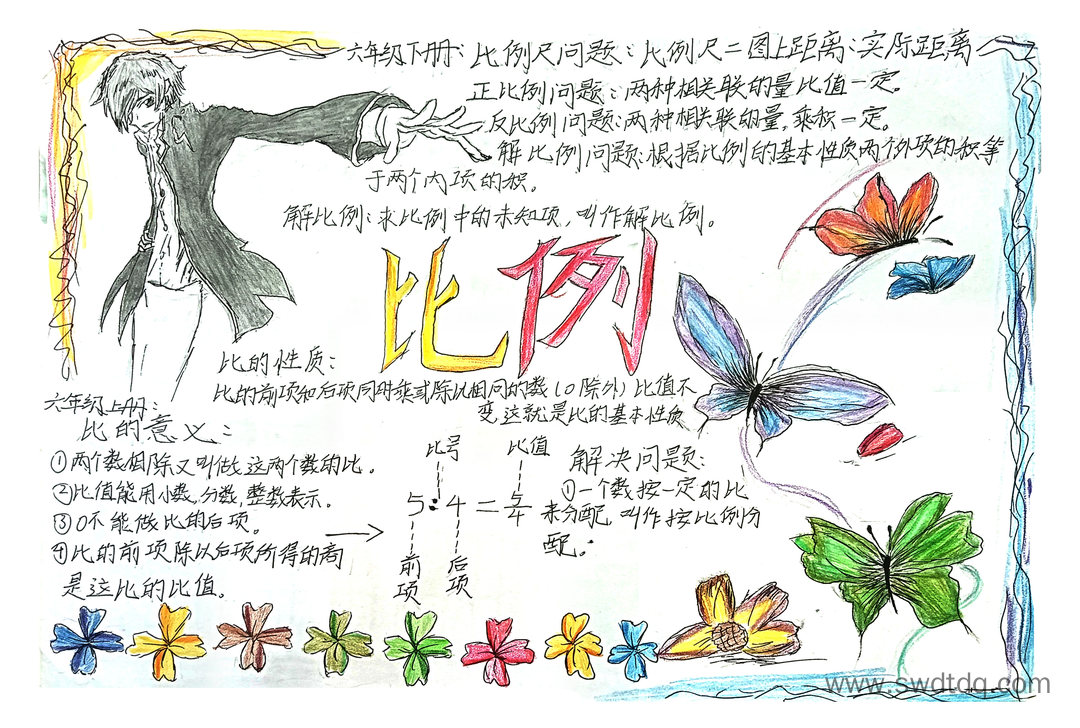 六年级下册：比例尺问题：比例尺=图上距离：实际距离
正比例问题：两种相关联的量比值一定。
反比例问题：两种相关联的量，乘积一定。
解比例问题：根据比例的基本性质两个外项的积等
于两个内项的积。
解比例：求比例中的未知项，叫作解比例。
比例
比的性质：
比的前项和后项同时乘或除以相同的数（0除外）比值不
变，这就是比的基本性质
六年级上册：
比的意义：
①两个数相除又叫做这两个数的比。
②比值能用小数，分数，整数表示。
③0不能做比的后项。
④比的前项除以后项所得的商
是这比的比值。
比号 比值
5:4=5/4
前项 后项
解决问题：
①一个数按一定的比
来分配，叫作按比例分
配。
www.swdtdq.com